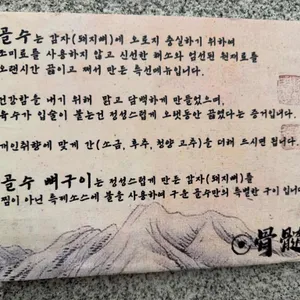 골수는 감자(돼지뼈)에 오로지 충실하기 위하여
조미료를 사용하지 않고 신선한 채소와 엄선된 원재료를
오랜시간 끓이고 쪄서 만든 특선메뉴입니다.
건강함을 내기 위해 맑고 담백하게 만들었으며,
육수가 입술이 붙는건 정성스럽게 오랫동안 끓였다는 증거입니다.
개인취향에 맞게 간(소금, 후추, 청양고추)을 더해 드시면 됩니다.
골수 뼈구이는 정성스럽게 만든 감자(돼지뼈)를
찜이 아닌 특제소스에 불을 사용하여 구운 골수만의 특별한 구이입니다
骨髓